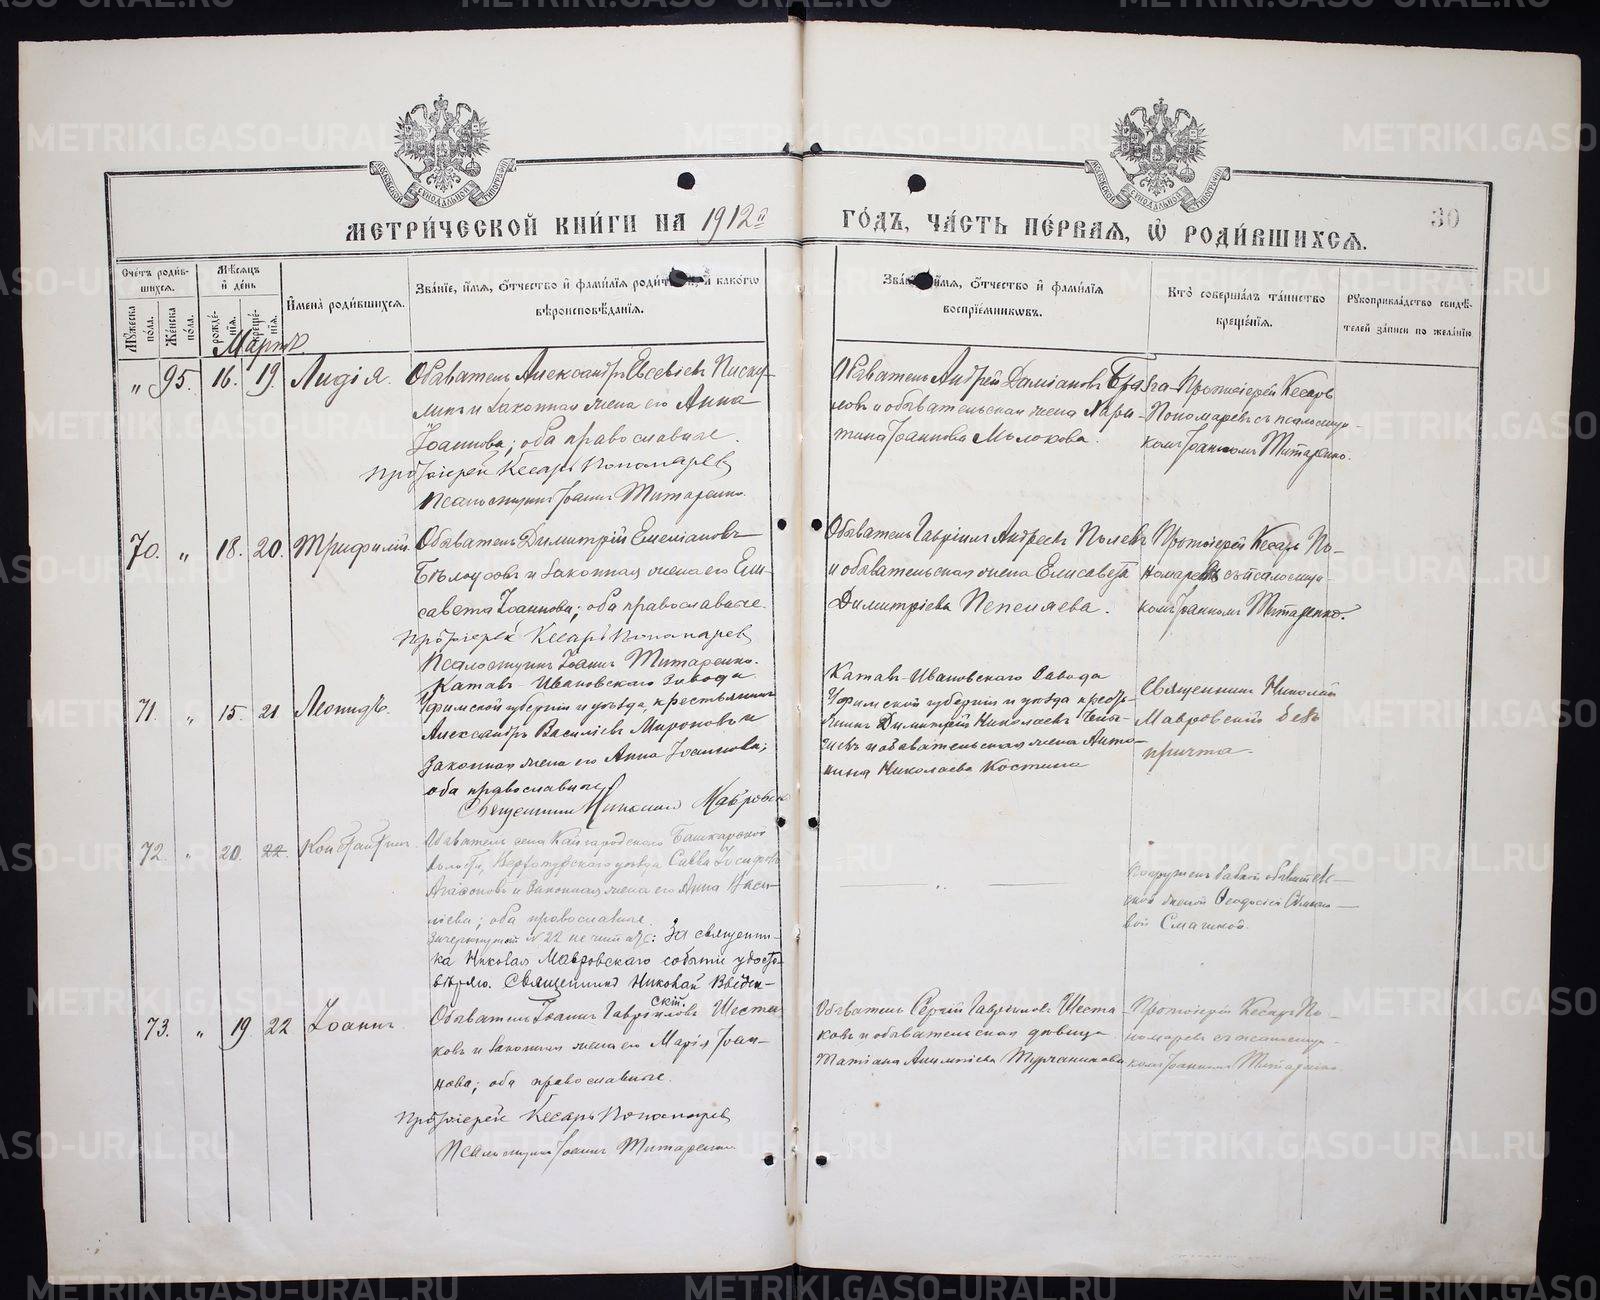 МЕТРИ́ЧЕСКОЙ КНИ́ГИ НА 1912й
ГО́ДЪ, ЧА́СТЬ ПЕ́РВАЯ, Ѡ РОДИ́ВШИХСЯ.
30
Сче́тъ роди́в-
шихся.
Мѣ́сяцъ
и́ де́нь
И҆мена̀ роди́вшихся.
Зва́нїе, и҆́мя, ѻ҆́тчество и҆ фами́лїя роди́т и҆ како́гѡ
вѣроисповѣ́данїя.
Му́жеска
по́ла.
Же́нска
по́ла.
рожде́-
нїя.
креще́-
нїя.
Зва и҆́мя, ѻ҆́тчество и҆ фами́лїя
воспрїе́мникѡвъ.
Кто̀ соверша́лъ та́инство
креще́нїя.
Рꙋкоприкла́дство свидѣ́-
телей за́писи по жела́нїю
Мартъ.
„ 95. 16. 19. Лидія.
Обыватель Александръ Евсевіевъ Писку-
линъ и законная жена его Анна
Іоаннова; оба православные.
Протоіерей Кесарь Пономаревъ
Псаломщикъ Іоаннъ Титаренко.
Обыватель Андрей Даміановъ
ловъ и обывательская жена Хари-
тина Іоаннова Молокова.
Протоіерей Кесарь
Пономаревъ съ псаломщи-
комъ Іоанномъ Титаренко.
70. „ 18. 20. Трифилій.
Обыватель Димитрій Емеліановъ
Бѣлоусовъ и законная жена его Ели-
савета Іоаннова; оба православные.
Протоіерей Кесарь Пономаревъ
Псаломщикъ Іоаннъ Титаренко.
Обыватель Гавріилъ Андреевъ Полевъ
и обывательская жена Елисавета
Димитріева Пепеляева.
Протоіерей Кесарь По-
номаревъ съ псаломщи-
комъ Іоанномъ Титаренко.
71. „ 15. 21 Леонидъ.
Катавъ-Ивановскаго завода
Уфимской губерніи и уѣзда, крестьянинъ
Александръ Василіевъ Мироновъ и
законная жена его Анна Іоаннова;
оба православные
Священникъ Николай Мавровск
Катавъ-Ивановскаго завода
Уфимской губерніи и уѣзда кресть-
янинъ Димитрій Николаевъ
и обывательская жена Анто-
нина Николаева Костина
Священникъ Николай
Мавровскій безъ
причта.
72. „ 20. 22. Константинъ.
Обыватель села Кайгородскаго Башкарской
волости, Верхотурскаго уѣзда Савва Іосифовъ
Агафоновъ и законная жена его Анна Васи-
ліева; оба православные.
Зачеркнутое №22 не читать: За священни-
ка Николая Мавровскаго событіе удосто-
вѣряю. Священникъ Николай Введен-
скій.
— „ —
Погруженъ бабкой обыватель-
ской женой Ѳеодосіей
вой
73. „ 19 22 Іоаннъ.
Обыватель Іоаннъ Гавріиловъ Шеста-
ковъ и законная жена его Марія Іоан-
нова; оба православные.
Протоіерей Кесарь Пономаревъ
Псаломщикъ Іоаннъ Титаренко
Обыватель Сергій Гавріиловъ Шеста
ковъ и обывательская дѣвица
Татіана Акимліева Турчанинова
Протоіерей Кесарь По-
номаревъ съ псаломщи-
комъ Іоанномъ Титаренко.
METRIKI.GASO-URAL.RU